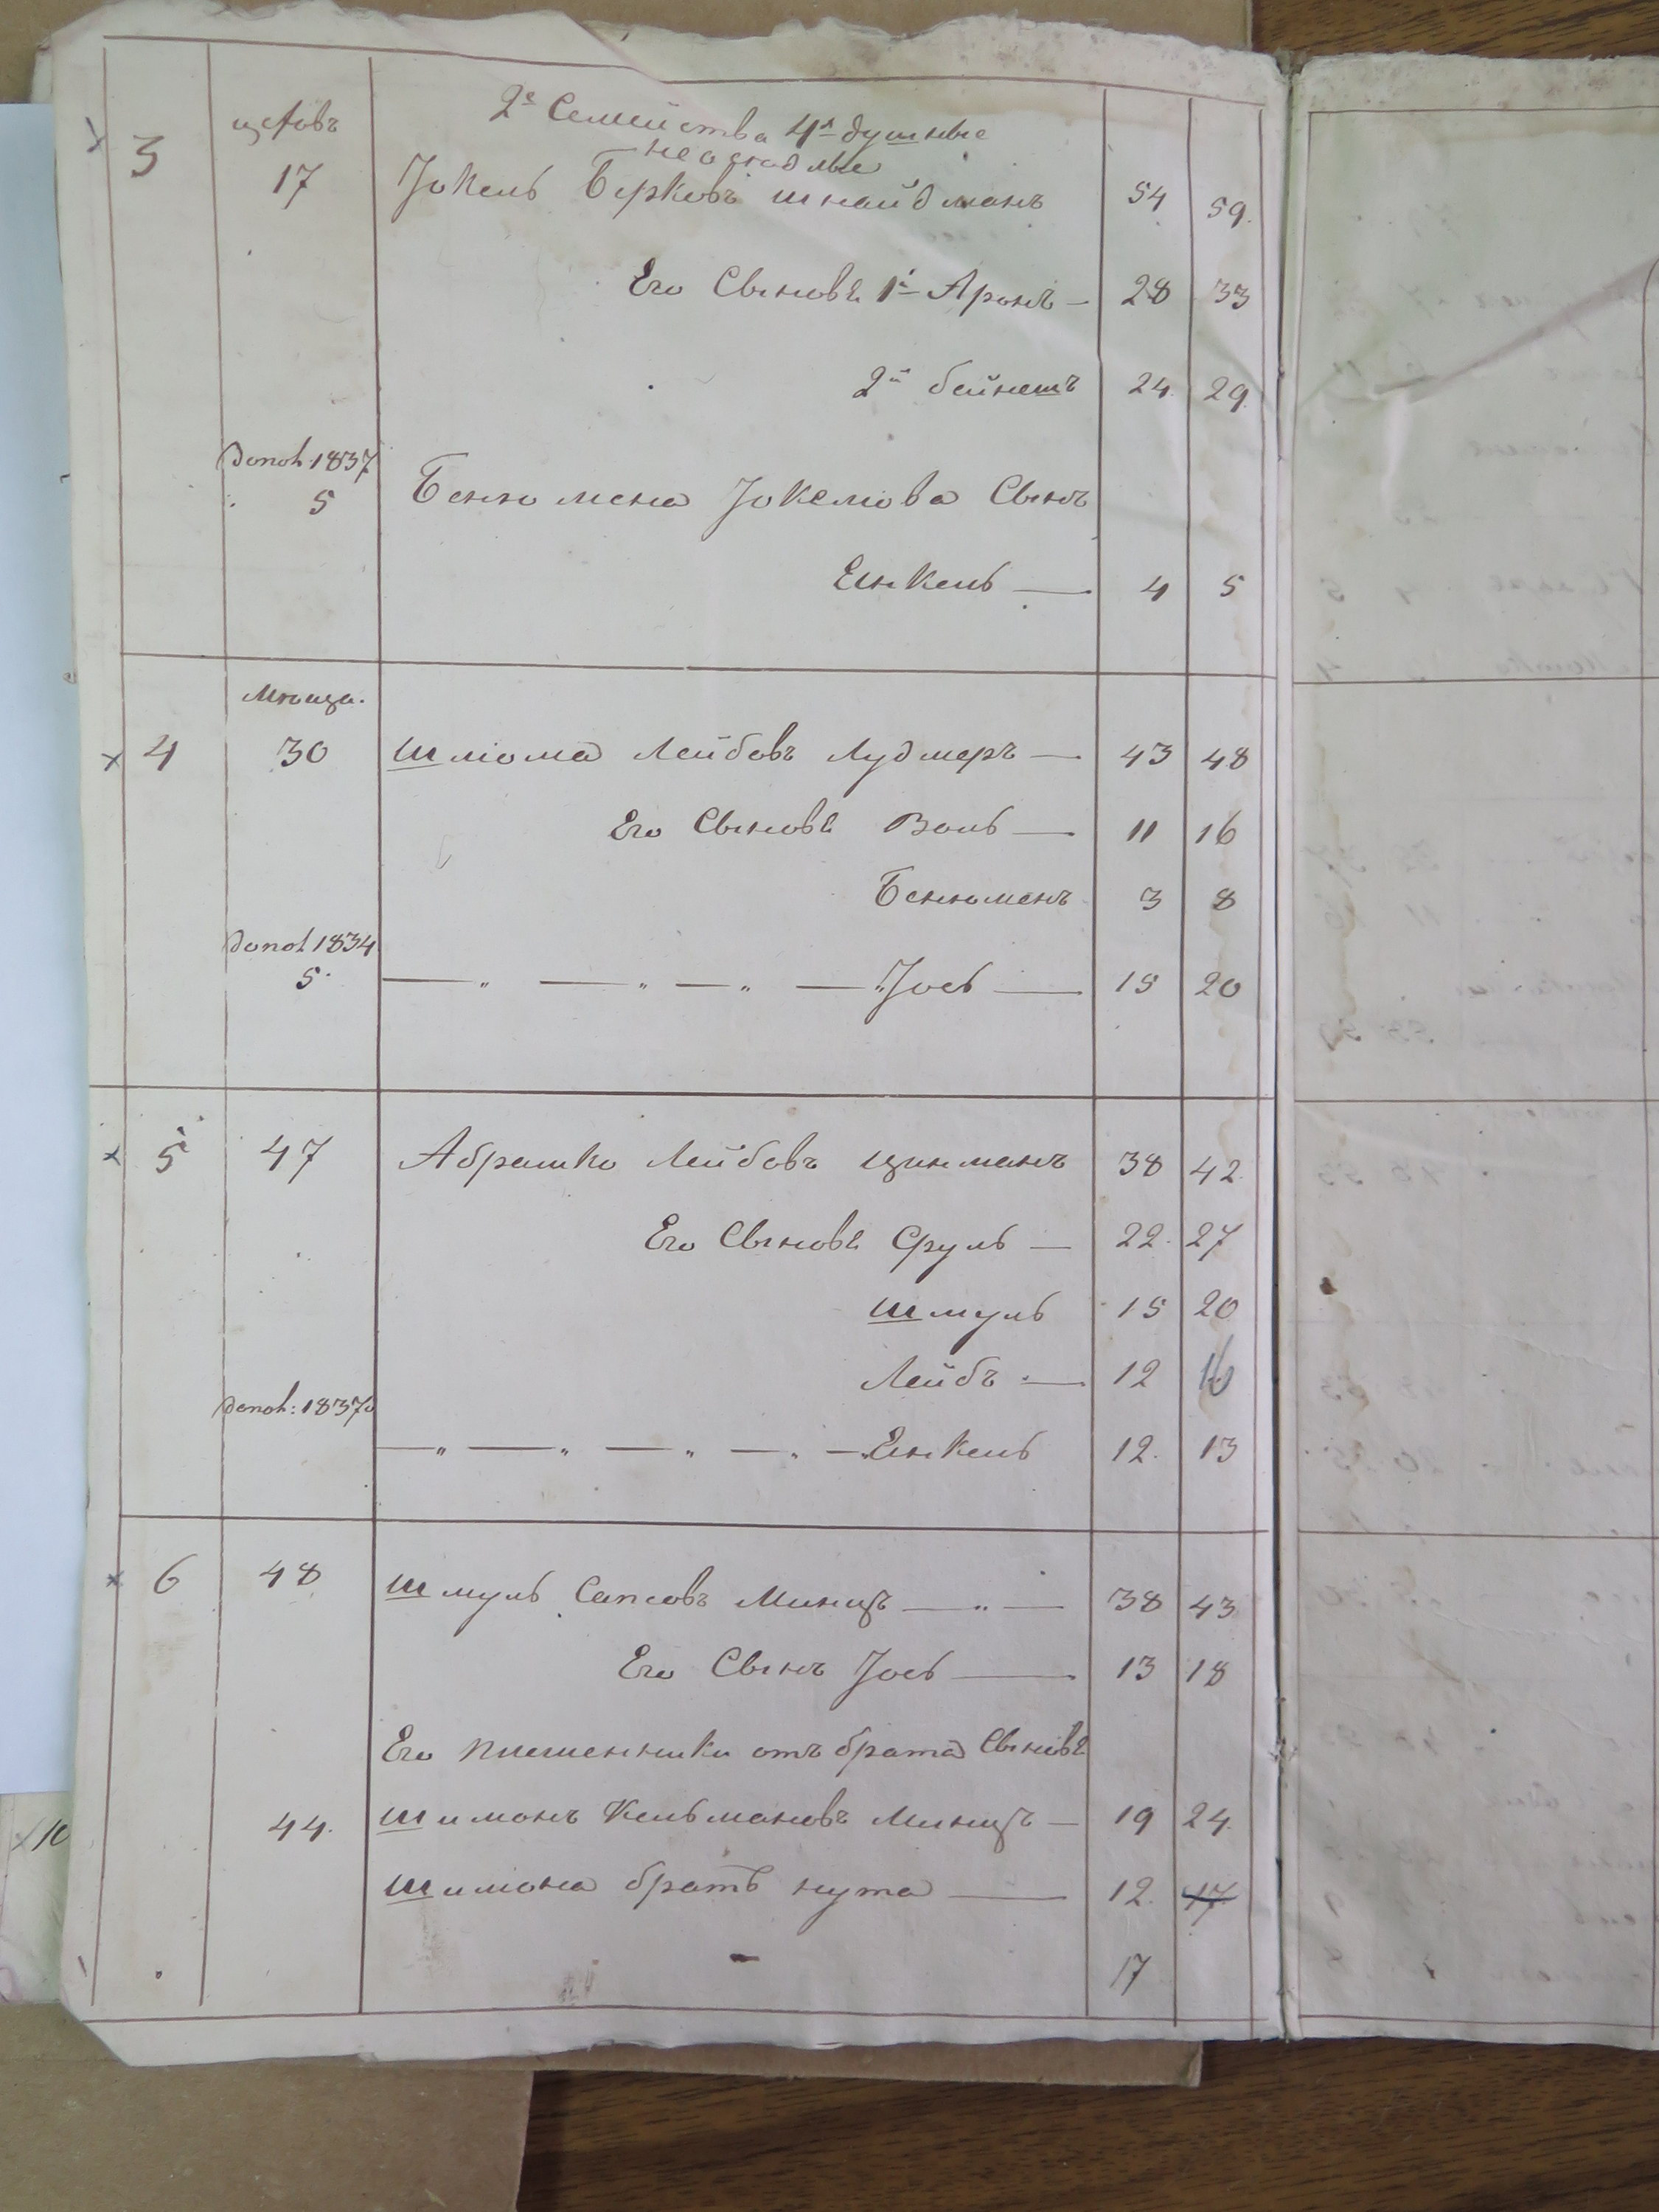 2е Семейства 4х душные
3 17 Іокель Берковъ Шнайдманъ 54 59.
Его Сыновья 1й Аронъ — 28 33
2й бейнешъ 24. 29.
Допол. 1837
5 Бенюмена Іокелюва Сынъ
Енкель — 4 5
Мѣща.
4 30 Шлюма Лейбовъ Лудмеръ — 43 48
Его Сыновья Воль — 11 16
Бенюменъ 3 8
Допол 1834
5. — „ — „ — „ — „ Іось — 15 20
5 47 Абрамко Лейбовъ Цинманъ 38 42.
Его Сыновья Сруль — 22. 27
Шмуль 15 20
Лейбъ — 12 16
Допол: 1837
— „ — „ — „ — „ — Енкель 12. 13
6 48 Шмуль Сапсовъ Минцъ — „ — 38 43
Его Сынъ Іось — 13 18
Его племенники отъ брата Сыновья
44. Шимонъ Кельмановъ Минцъ — 19 24.
Шимона братъ нута — 12. 17
17